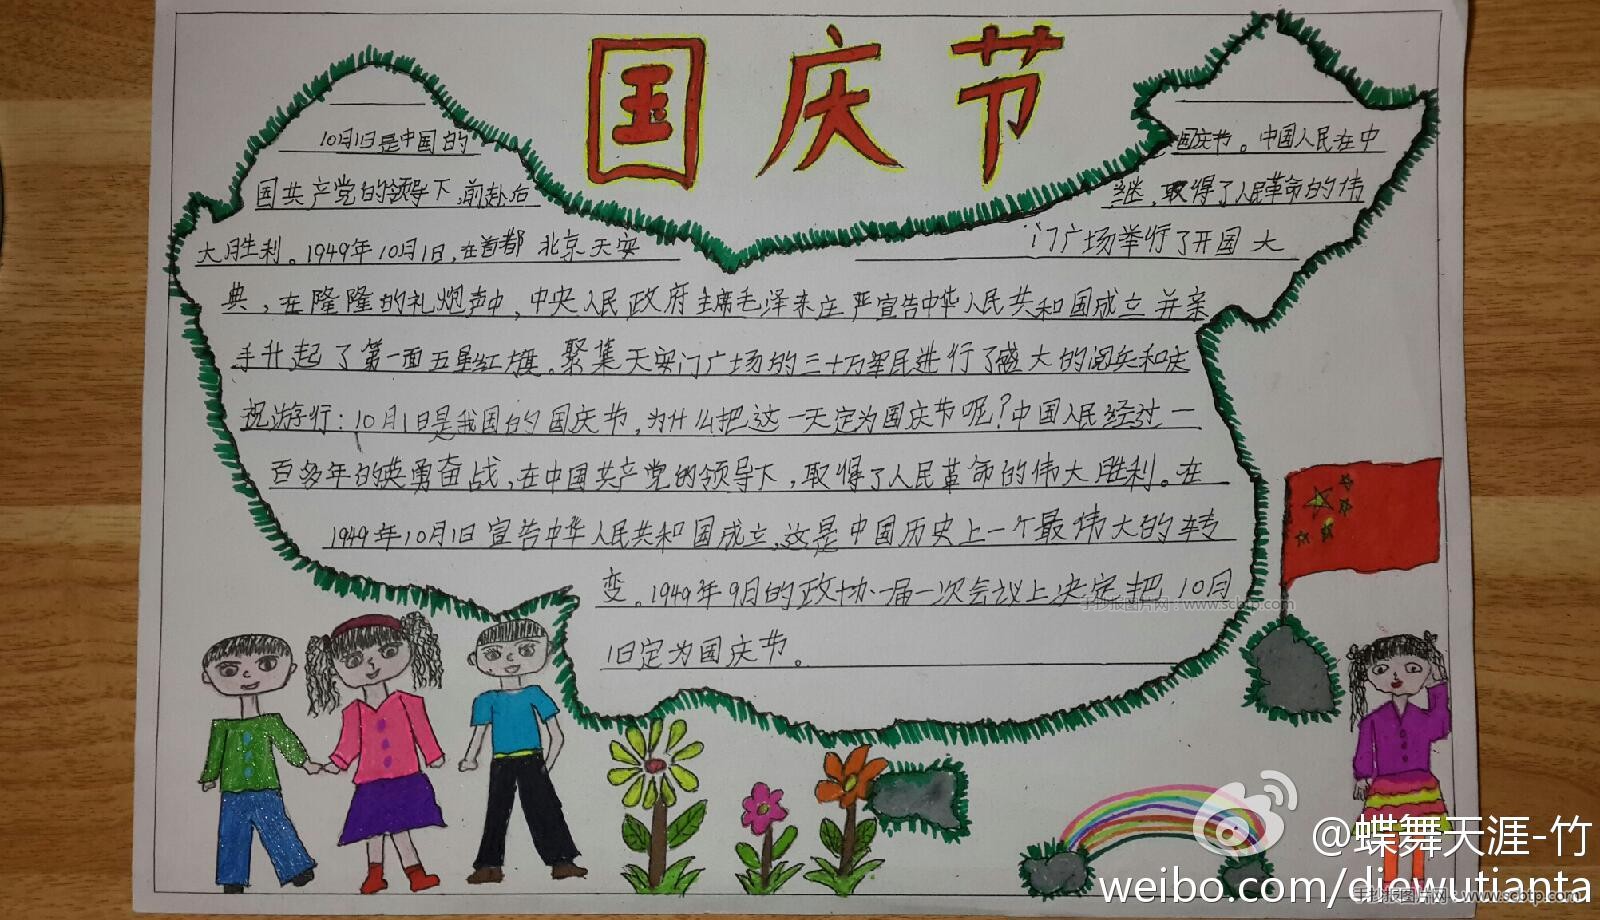 国庆节
10月1日是中国的 国庆节。中国人民在中
国共产党的领导下,前赴后 继,取得了人民革命的伟
大胜利。1949年10月1日,在首都 北京天安 门广场举行了开国 大
典,在隆隆的礼炮声中,中央人民政府主席毛泽东庄严宣告中华人民共和国成立并亲
手升起了第一面五星红旗。聚集天安门广场的三十万军民进行了盛大的阅兵和庆
祝游行:10月1日是我国的国庆节,为什么把这一天定为国庆节呢?中国人民经过一
百多年的英勇奋战,在中国共产党的领导下,取得了人民革命的伟大胜利。在
1949年10月1日宣告中华人民共和国成立,这是中国历史上一个最伟大的转
变。1949年9月的政协一届一次会议上决定把10月
1日定为国庆节。
手抄报图片网:www.scbtp.com
@蝶舞天涯-竹
weibo.com/diewutianta
手抄报图片网:www.scbtp.com